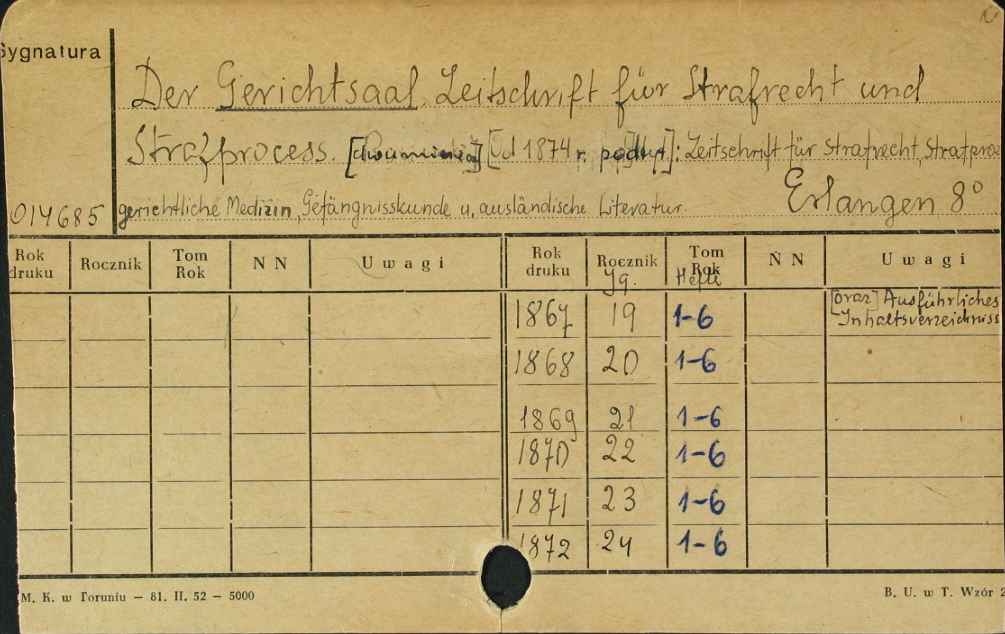 Sygnatura
Der Gerichtsaal. Zeitschrift für Strafrecht und
Strafprocess. [dwumiesięcz] [Od 1874 r. podtyt]: Zeitschrift für Strafrecht, Strafproc
014685 gerichtliche Medizin, Gefängnisskunde u. ausländische Literatur. Erlangen 8°
Rok druku Rocznik Tom Rok N N Uwagi Rok druku Rocznik Tom Rok N N Uwagi
Jg. Hefte
1867 19 1-6 [oraz] Ausführliches
Inhaltsverzeichniss
1868 20 1-6
1869 21 1-6
1870 22 1-6
1871 23 1-6
1872 24 1-6
M. K. w Toruniu — 81. II. 52 — 5000 B. U. w T. Wzór 2